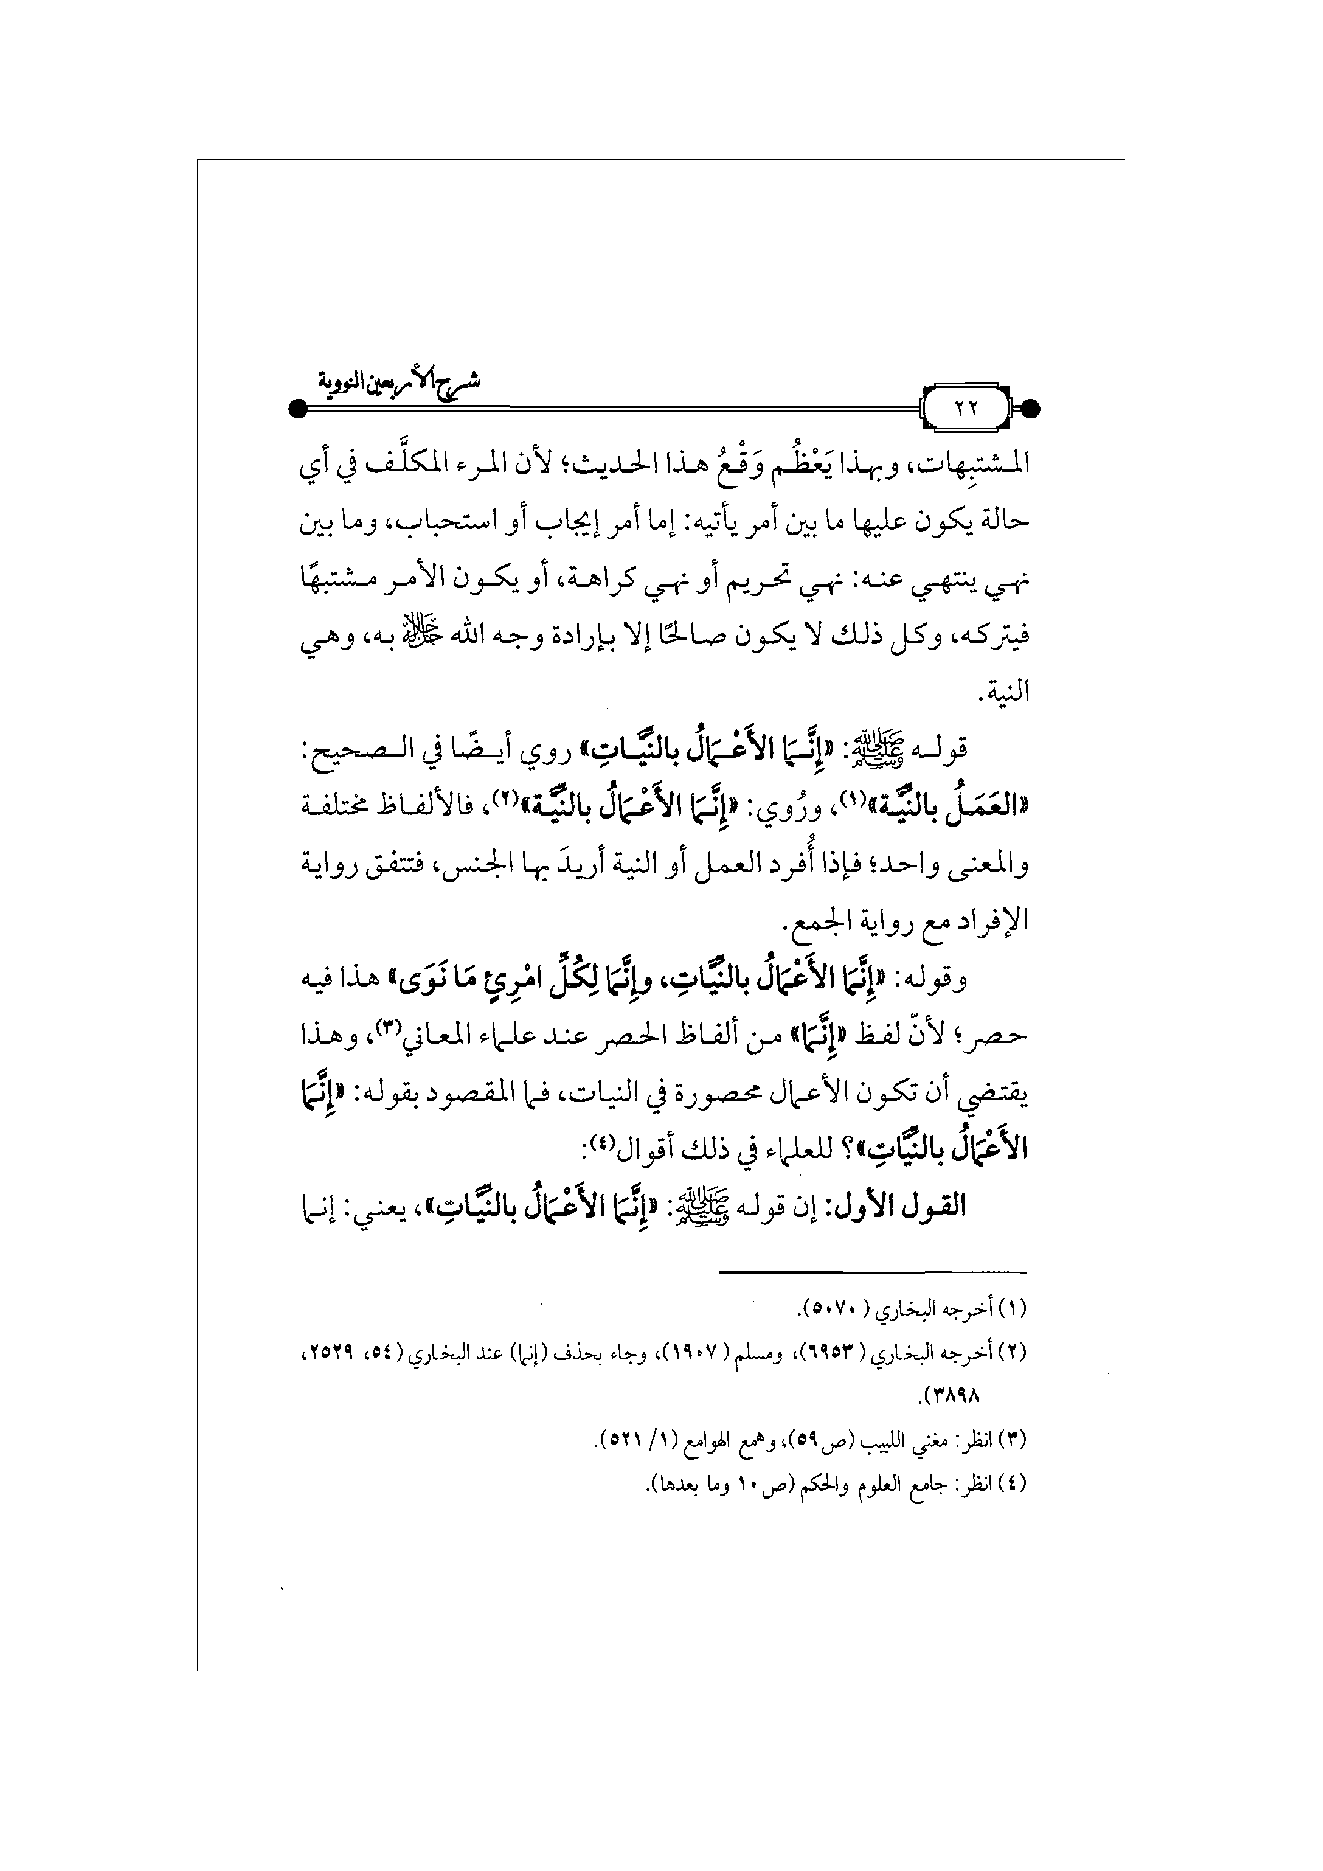 شرح الأربعين النووية
٢٢
المشتبِهات، وبهذا يَعْظُم وَقْعُ هذا الحديث؛ لأن المرء المكلَّف في أي
حالة يكون عليها ما بين أمر يأتيه: إما أمر إيجاب أو استحباب، وما بين
نهي ينتهي عنه: نهي تحريم أو نهي كراهة، أو يكون الأمر مشتبهًا
فيتركه، وكل ذلك لا يكون صالحًا إلا بإرادة وجه الله ﷻ به، وهي
النية.
قوله ﷺ: «إِنَّمَا الأَعْمَالُ بالنِّيَّاتِ» روي أيضًا في الصحيح:
«العَمَلُ بالنِّيَّة»(١)، ورُوي: «إِنَّمَا الأَعْمَالُ بالنِّيَّة»(٢)، فالألفاظ مختلفة
والمعنى واحد؛ فإذا أُفرد العمل أو النية أريدَ بها الجنس، فتتفق رواية
الإفراد مع رواية الجمع.
وقوله: «إِنَّمَا الأَعْمَالُ بالنِّيَّاتِ، وإِنَّمَا لِكُلِّ امْرِئٍ مَا نَوَى» هذا فيه
حصر؛ لأنّ لفظ «إِنَّمَا» من ألفاظ الحصر عند علماء المعاني(٣)، وهذا
يقتضي أن تكون الأعمال محصورة في النيات، فما المقصود بقوله: «إِنَّمَا
الأَعْمَالُ بالنِّيَّاتِ»؟ للعلماء في ذلك أقوال(٤):
القول الأول: إن قوله ﷺ: «إِنَّمَا الأَعْمَالُ بالنِّيَّاتِ»، يعني: إنما
(١) أخرجه البخاري (٥٠٧٠).
(٢) أخرجه البخاري (٦٩٥٣)، ومسلم (١٩٠٧)، وجاء بحذف (إنما) عند البخاري (٥٤، ٢٥٢٩،
٣٨٩٨).
(٣) انظر: مغني اللبيب (ص٥٩)، وهمع الهوامع (١/ ٥٢١).
(٤) انظر: جامع العلوم والحكم (ص١٠ وما بعدها).